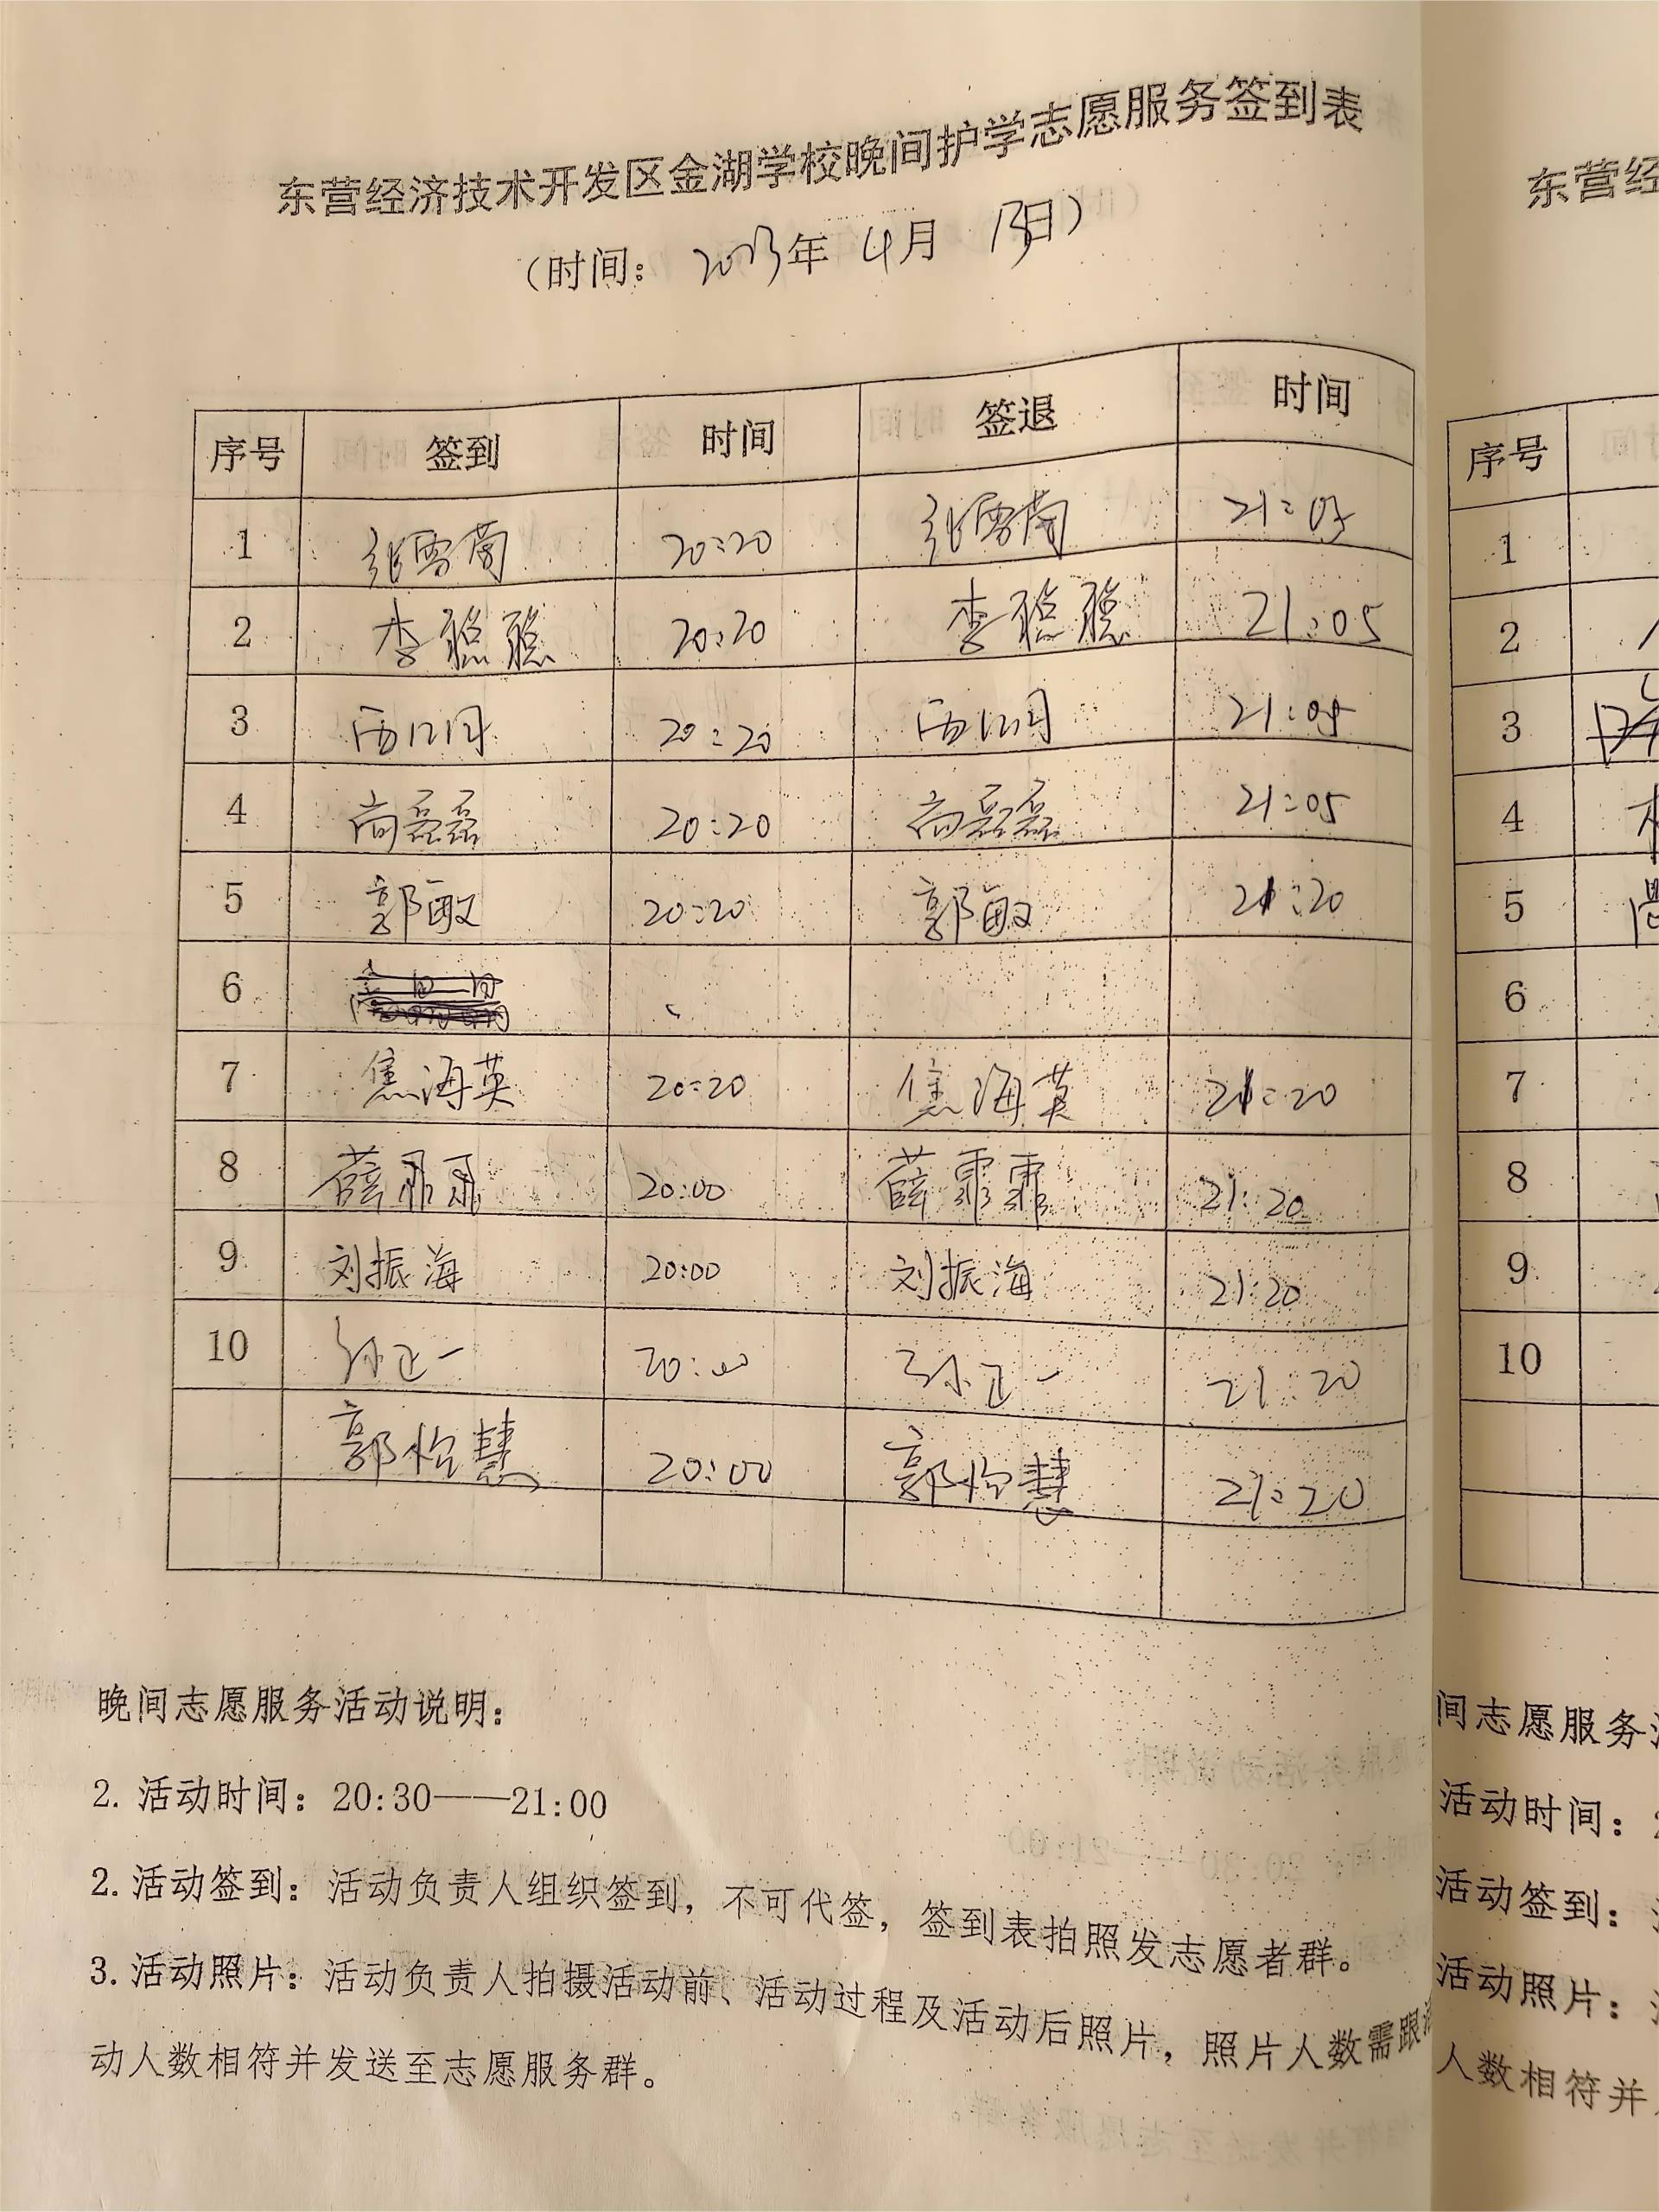 东营经济技术开发区金湖学校晚间护学志愿服务签到表
（时间： 2023年 4月 13日）
序号 签到 时间 签退 时间
1 张雪菊 20:20 张雪菊 21:05
2 李聪聪 20:20 李聪聪 21:05
3 20:20 21:05
4 尚磊磊 20:20 尚磊磊 21:05
5 郭敏 20:20 郭敏 21:20
6
7 焦海英 20:20 焦海英 21:20
8 薛霏霏 20:00 薛霏霏 21:20
9 刘振海 20:00 刘振海 21:20
10 孙正一 20:00 孙正一 21:20
郭怡慧 20:00 郭怡慧 21:20
晚间志愿服务活动说明：
2. 活动时间：20:30——21:00
2. 活动签到：活动负责人组织签到，不可代签，签到表拍照发志愿者群。
3. 活动照片：活动负责人拍摄活动前、活动过程及活动后照片，照片人数需跟
动人数相符并发送至志愿服务群。
东营经
序号
1
2
3
4
5
6
7
8
9
10
间志愿服务
活动时间：
活动签到：
活动照片：
人数相符并